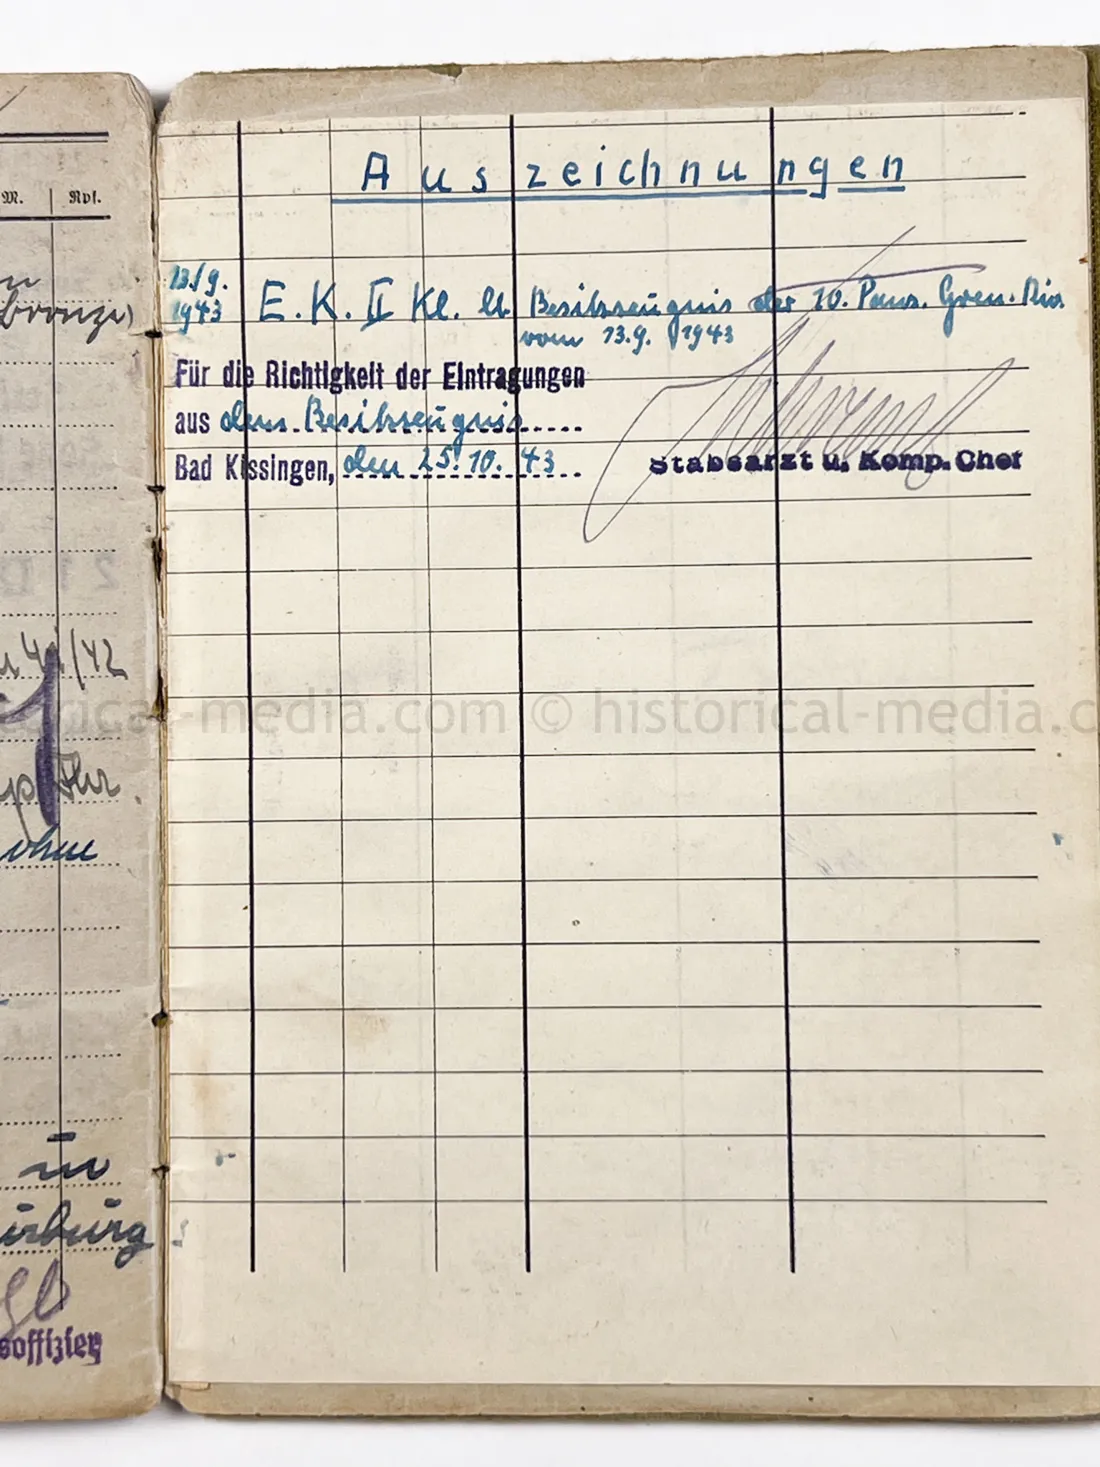 M. Rpf.
bronze)
41/42
ohne
in
soffizier
Auszeichnungen
13./9.
1943 E.K. II Kl. lt. Besitzzeugnis der 10. Panz. Gren. Div.
vom 13.9.1943
Für die Richtigkeit der Eintragungen
aus dem Besitzzeugnis
Bad Kissingen, den 25.10.43
Stabsarzt u. Komp. Chef
historical-media.com © historical-media.c